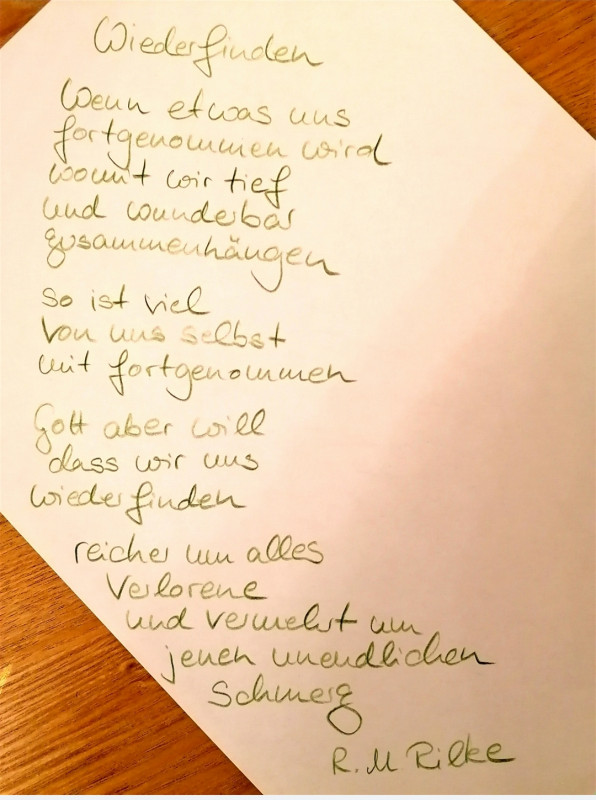 Wiederfinden
Wenn etwas uns
fortgenommen wird
womit wir tief
und wunderbar
zusammenhängen
so ist viel
von uns selbst
mit fortgenommen
Gott aber will
dass wir uns
wiederfinden
reicher um alles
Verlorene
und vermehrt um
jenen unendlichen
Schmerz
R. M Rilke